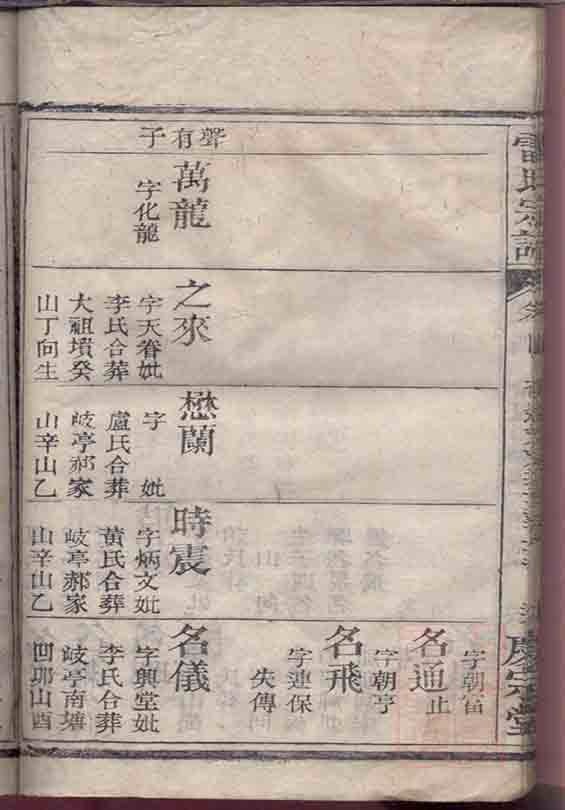 雷氏宗譜
卷四
慶宗堂
聲有子
萬龍
字化龍
之來
字天眷妣
李氏合葬
大祖墳癸
山丁向生
懋蘭
字 妣
盧氏合葬
岐亭郝家
山辛山乙
時震
字炳文妣
黃氏合葬
岐亭郝家
山辛山乙
字朝笛
名通止
字朝亨
名飛
字連保
失傳
名儀
字興堂妣
李氏合葬
岐亭南塘
凹耶山酉